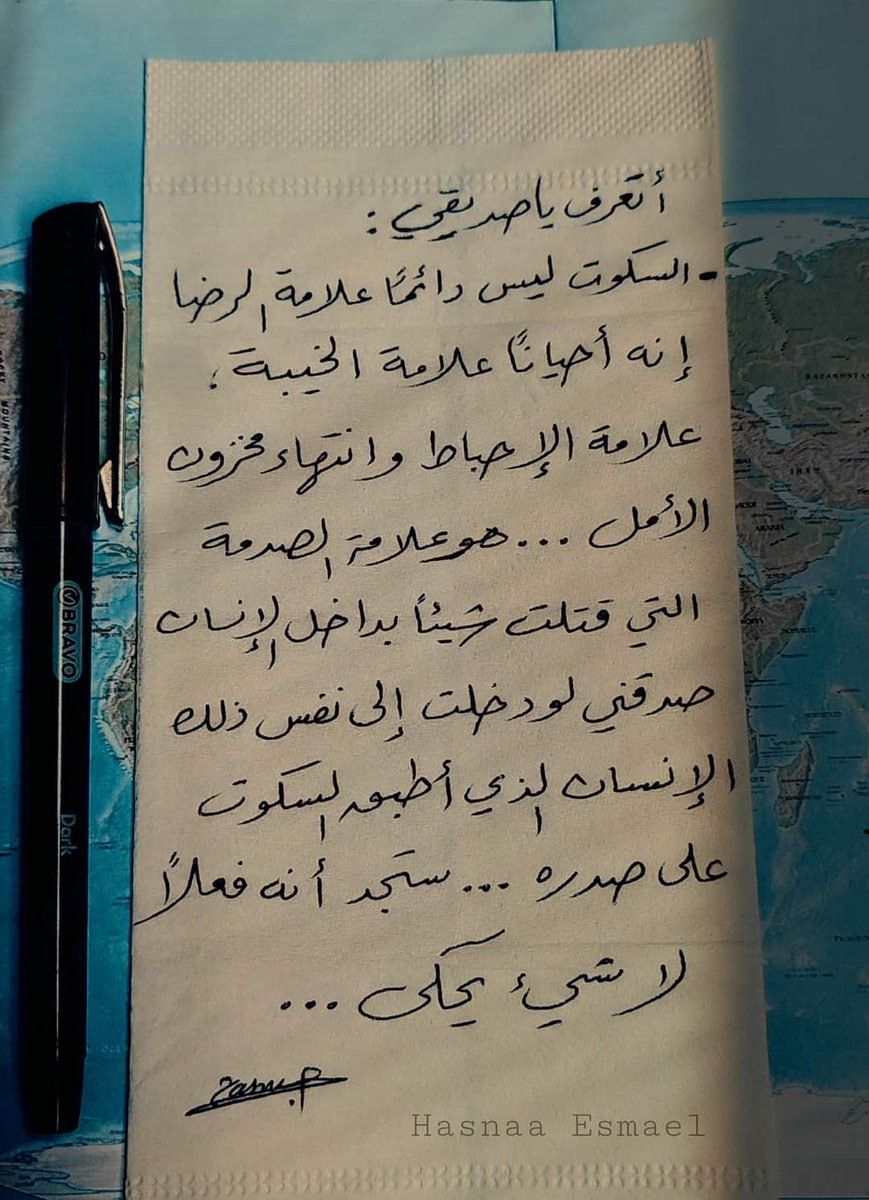 أتعرف يا صديقي :
- السكوت ليس دائمًا علامة الرضا
إنه أحيانًا علامة الخيبة ،
علامة الإحباط وانتهاء مخزون
الأمل ... هو علامة الصدمة
التي قتلت شيئاً بداخل الإنسان
صدقني لو دخلت إلى نفس ذلك
الإنسان الذي أطبق السكوت
على صدره ... ستجد أنه فعلاً
لا شيء يحكى ...
Hasnaa Esmael
BRAVO
Dark
KAZAKHSTAN
IRAN
ARABIA